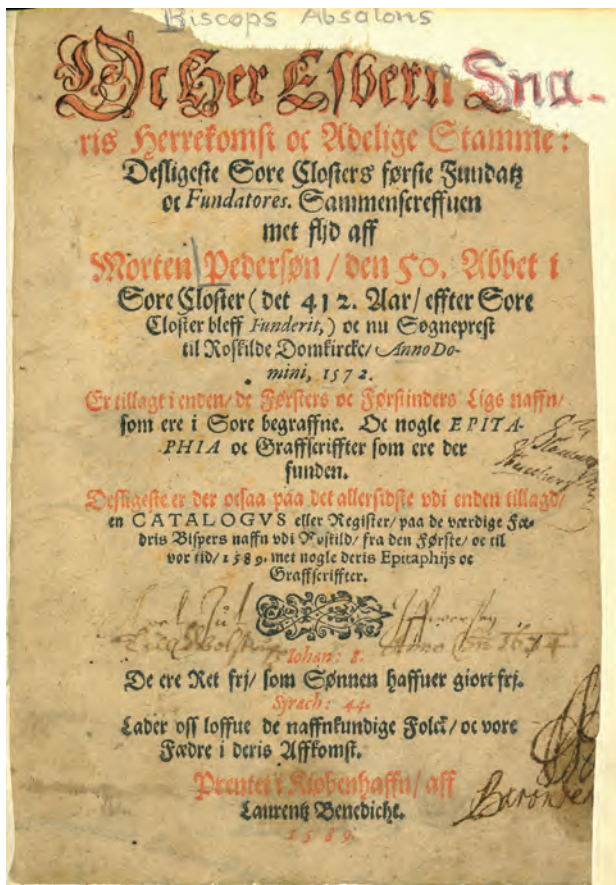 Biscops Absalons
Oc Her Esbern Sna-
ris Herrekomst oc Adelige Stamme:
Desligeste Sore Closters første Fundatz
oc Fundatores. Sammenscreffuen
met flijd aff
Morten Pedersøn / den 50. Abbet i
Sore Closter (det 412. Aar / effter Sore
Closter bleff Funderit,) oc nu Sogneprest
til Roskilde Domkircke / Anno Do-
mini, 1572.
Er tillagt i enden / de Førsters oc Førstinders Ligs naffn /
som ere i Sore begraffne. Oc nogle EPITA-
PHIA oc Graffscriffter som ere der
funden.
Desligeste er der ocsaa paa det allersidste vdi enden tillagd /
en CATALOGVS eller Register / paa de værdige Fæ-
dris Bispers naffn vdi Roskild / fra den Første / oc til
vor tid / 1589. met nogle deris Epitaphijs oc
Graffscriffter.
Anno 1674
Iohan: 8.
De ere Ret frj / som Sønnen haffuer giort frj.
Syrach: 44.
Lader oss loffue de naffnkundige Folck / oc vore
Fædre i deris Affkomst.
Prentet i Kiøbenhaffn / aff
Laurentz Benedicht.
1589.